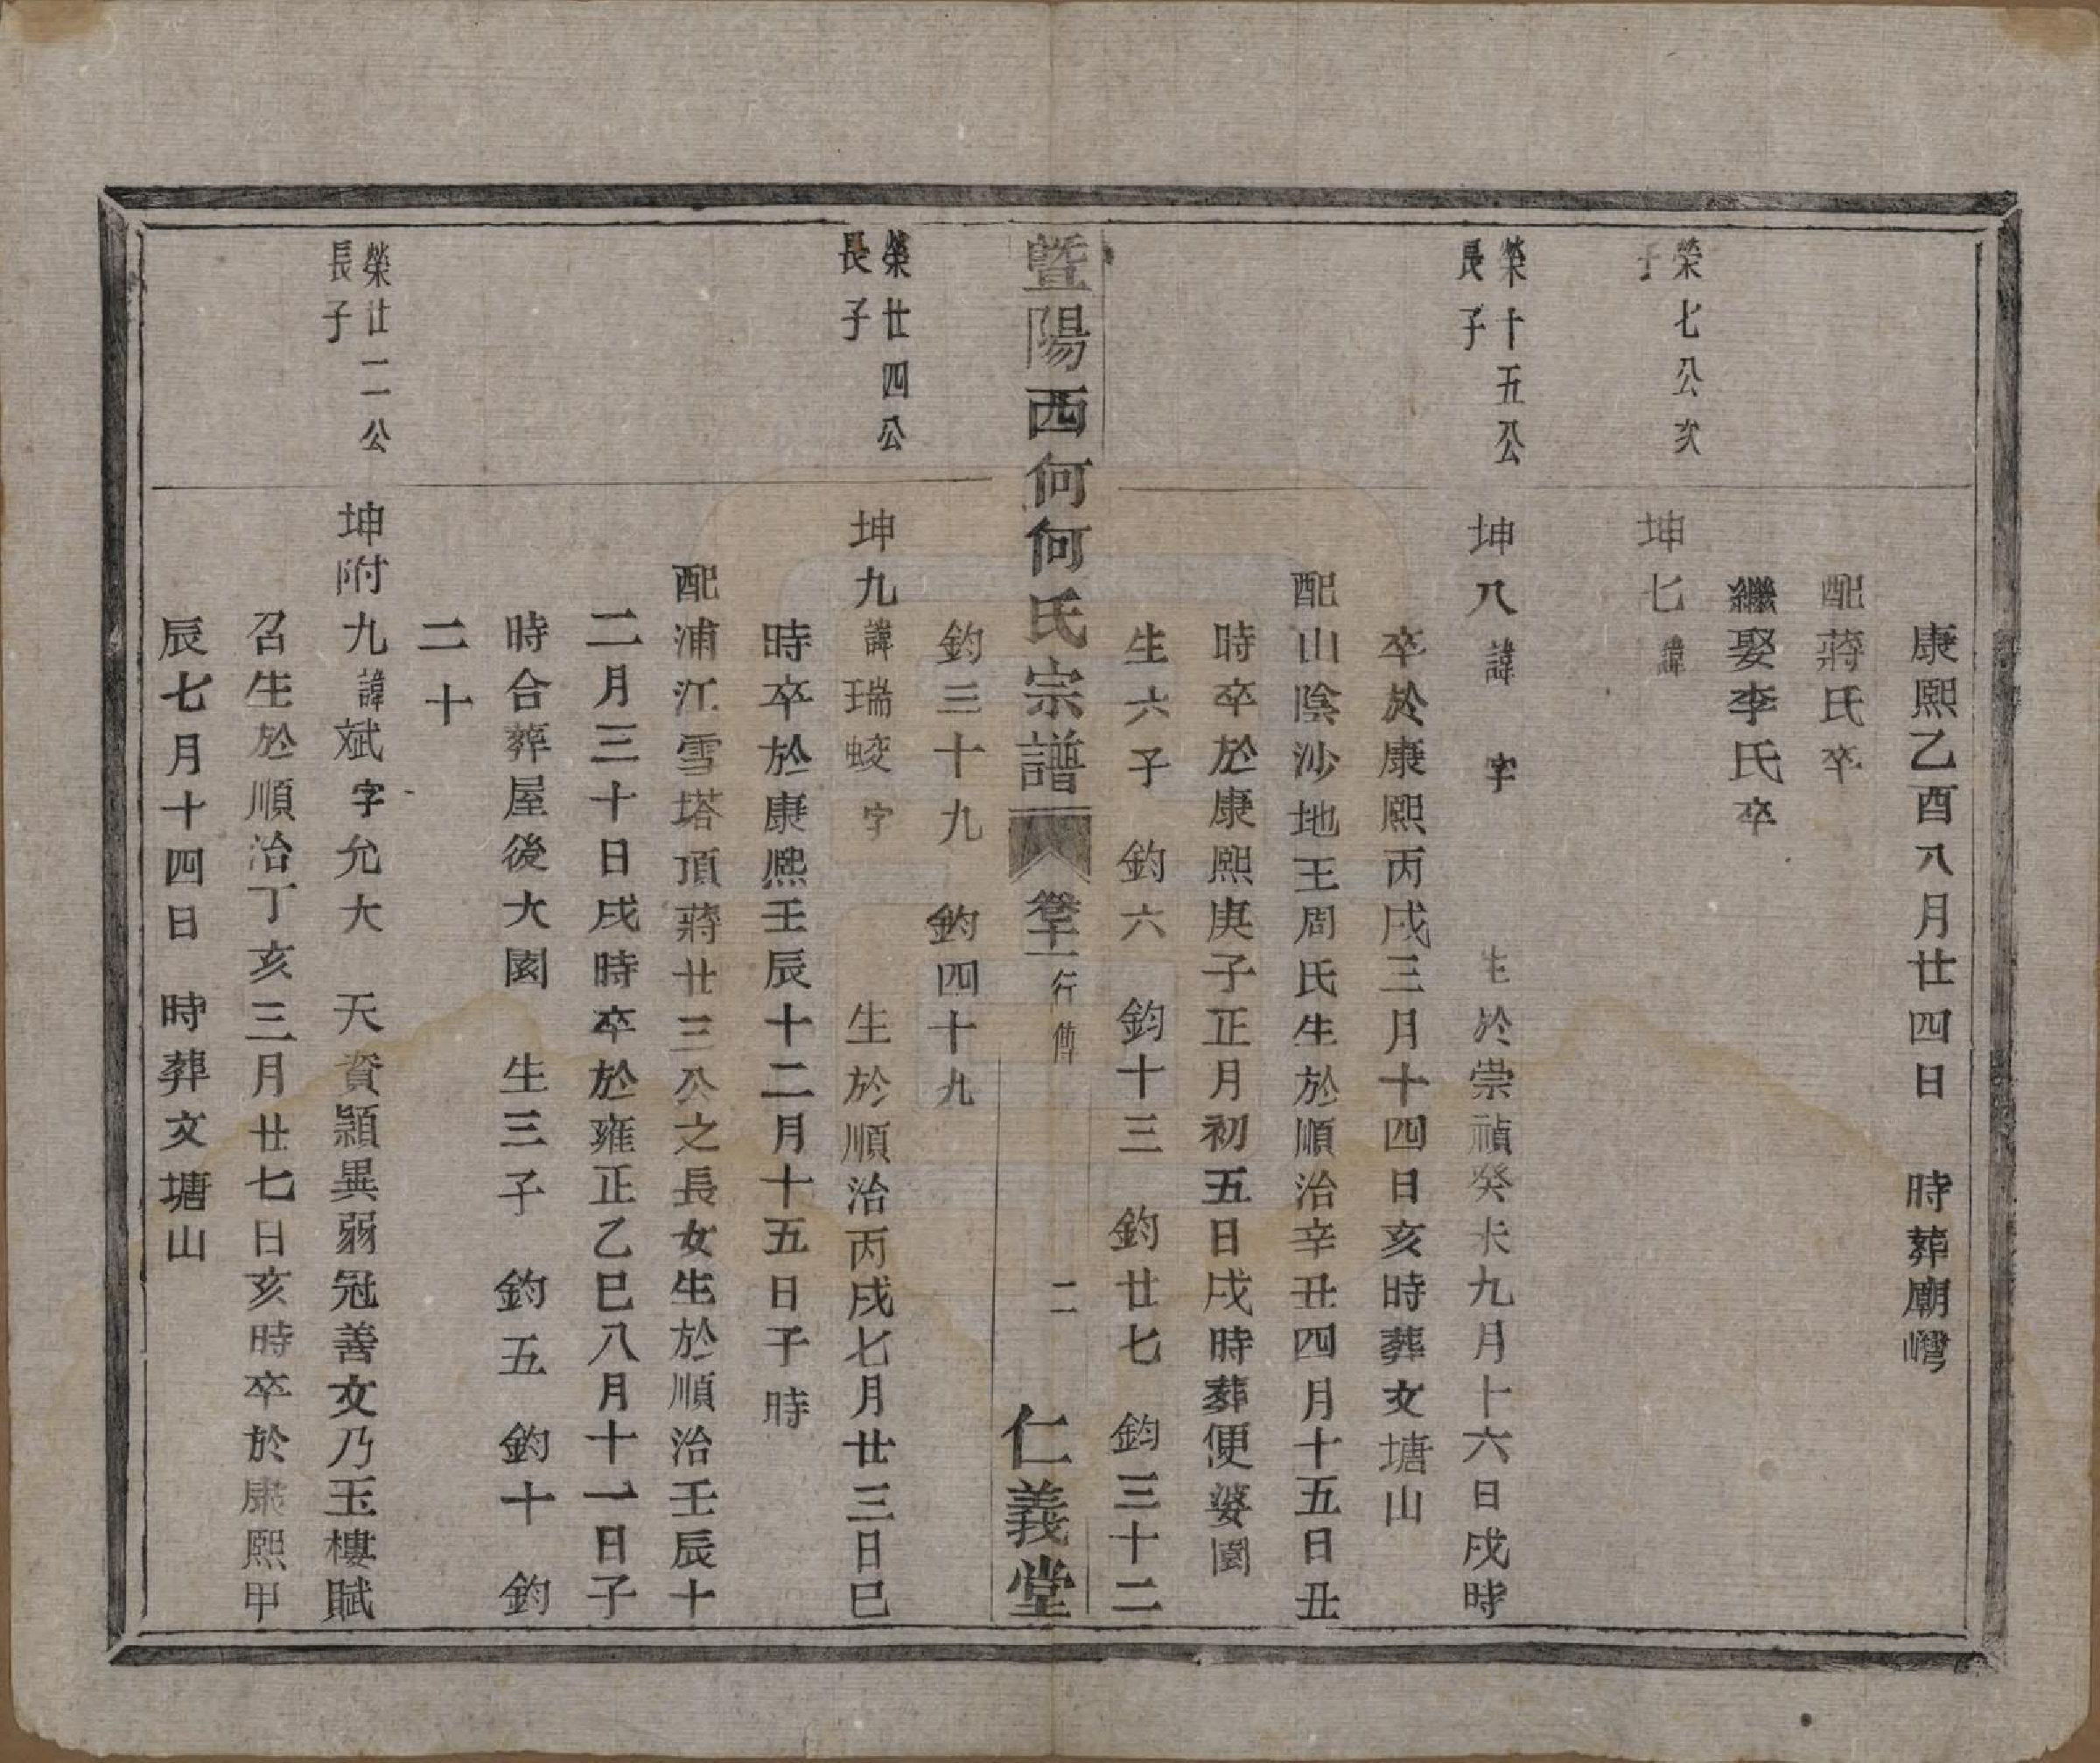 康熙乙酉八月廿四日　時葬廟嶴
配蔣氏卒
繼娶李氏卒
榮七公次
子
坤七諱
榮十五公
長子
坤八諱　字　　生於崇禎癸未九月十六日戌時
卒於康熙丙戌三月十四日亥時葬文塘山
配山陰沙地王周氏生於順治辛丑四月十五日丑
時卒於康熙庚子正月初五日戌時葬便婆園
生六子　鈞六　鈞十三　鈞廿七　鈞三十二
暨陽西何何氏宗譜　卷十一　行傳　二　仁義堂
鈞三十九　鈞四十九
榮廿四公
長子
坤九諱瑞蛟字　　生於順治丙戌七月廿三日巳
時卒於康熙壬辰十二月十五日子時
配浦江雪塔頂蔣廿三公之長女生於順治壬辰十
二月三十日戌時卒於雍正乙巳八月十一日子
時合葬屋後大園　生三子　鈞五　鈞十　鈞
二十
榮廿二公
長子
坤附九諱斌字允大　天資穎異弱冠善文乃玉樓賦
召生於順治丁亥三月廿七日亥時卒於康熙甲
辰七月十四日　時葬文塘山